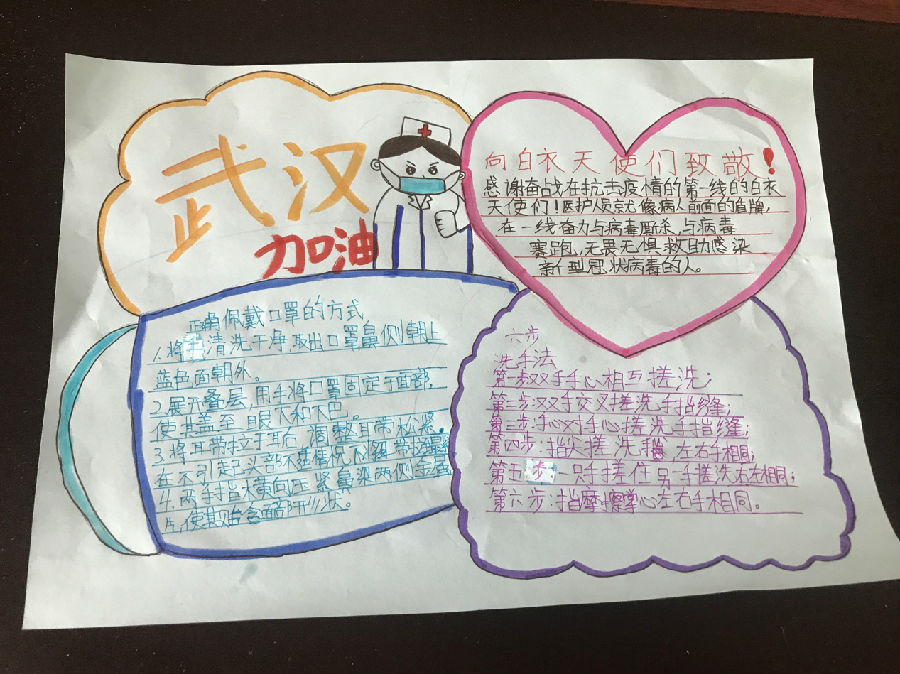 武汉
加油
向白衣天使们致敬!
感谢奋战在抗击疫情的第一线的白衣
天使们!医护人员就像病人前面的盾牌,
在一线奋力与病毒厮杀,与病毒
赛跑,无畏无惧救助感染
新型冠状病毒的人。
正确佩戴口罩的方式
1.将手清洗干净,取出口罩鼻侧朝上
蓝色面朝外。
2.展开叠层,用手将口罩固定于面部
使其盖至眼下和下巴。
3.将耳带挂于耳后,调整耳带松紧,
在不引起头部不适情况下
4.两手指大横向压紧鼻梁两侧
六步
洗手法
第一步:双手手心相互搓洗;
第二步:双手交叉搓洗手指缝;
第三步:手心对手心搓洗手指缝;
第四步:指尖搓洗手 左右手相同;
第五步:一只手搓住另一手搓洗左右相同;
第六步:指摩擦掌心左右手相同。